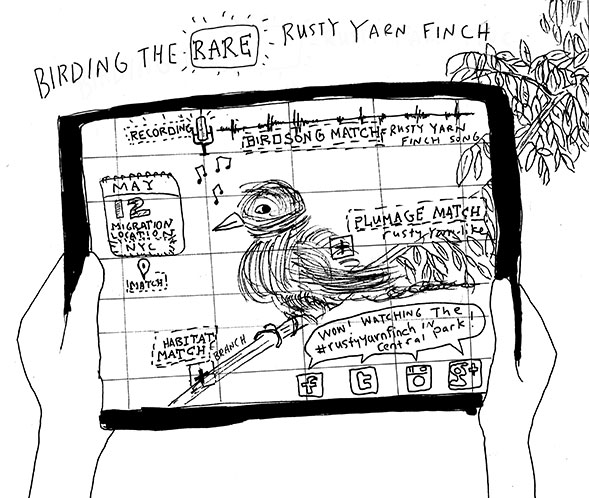 BIRDING THE RARE RUSTY YARN FINCH
RECORDING
BIRDSONG MATCH
RUSTY YARN
FINCH SONG
MAY
12
MIGRATION
LOCATION
NYC
MATCH
PLUMAGE MATCH
rusty, yarn-like
HABITAT
MATCH
BRANCH
WOW! WATCHING The
#rustyyarnfinch in
central park!
f
t
g+